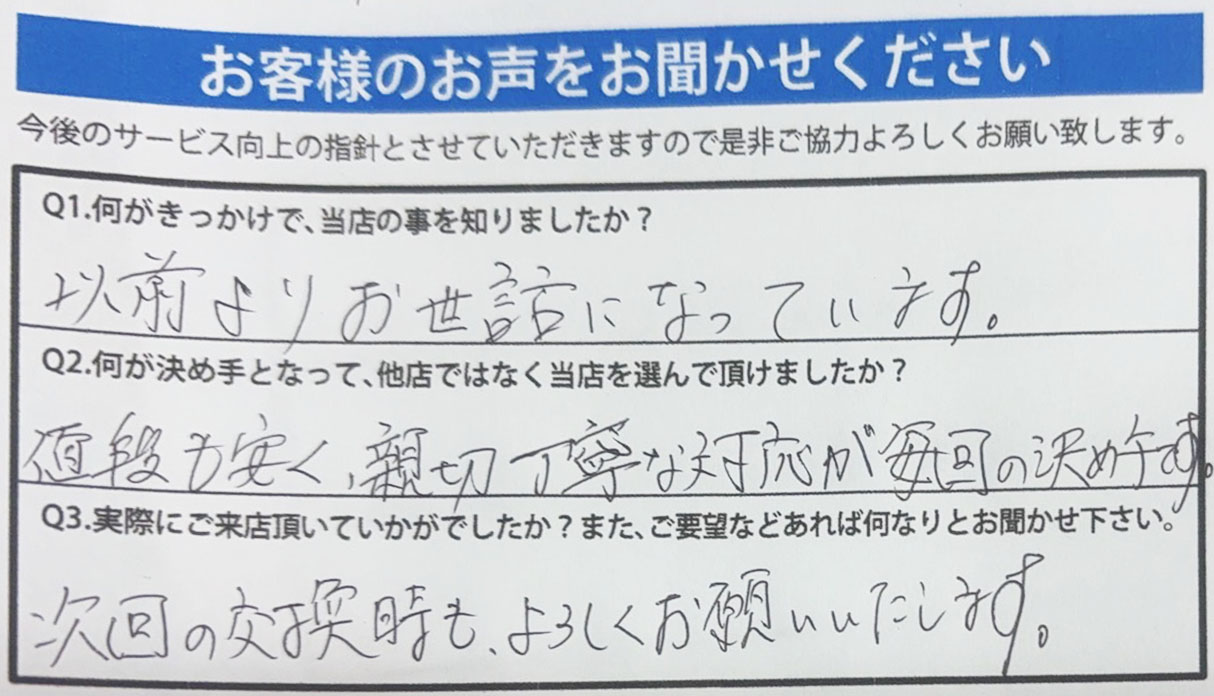 お客様のお声をお聞かせください
今後のサービス向上の指針とさせていただきますので是非ご協力よろしくお願い致します。
Q1.何がきっかけで、当店の事を知りましたか？
以前よりお世話になっています。
Q2.何が決め手となって、他店ではなく当店を選んで頂けましたか？
値段も安く、親切丁寧な対応が毎回の決め手です。
Q3.実際にご来店頂いていかがでしたか？また、ご要望などあれば何なりとお聞かせ下さい。
次回の交換時も、よろしくお願いいたします。